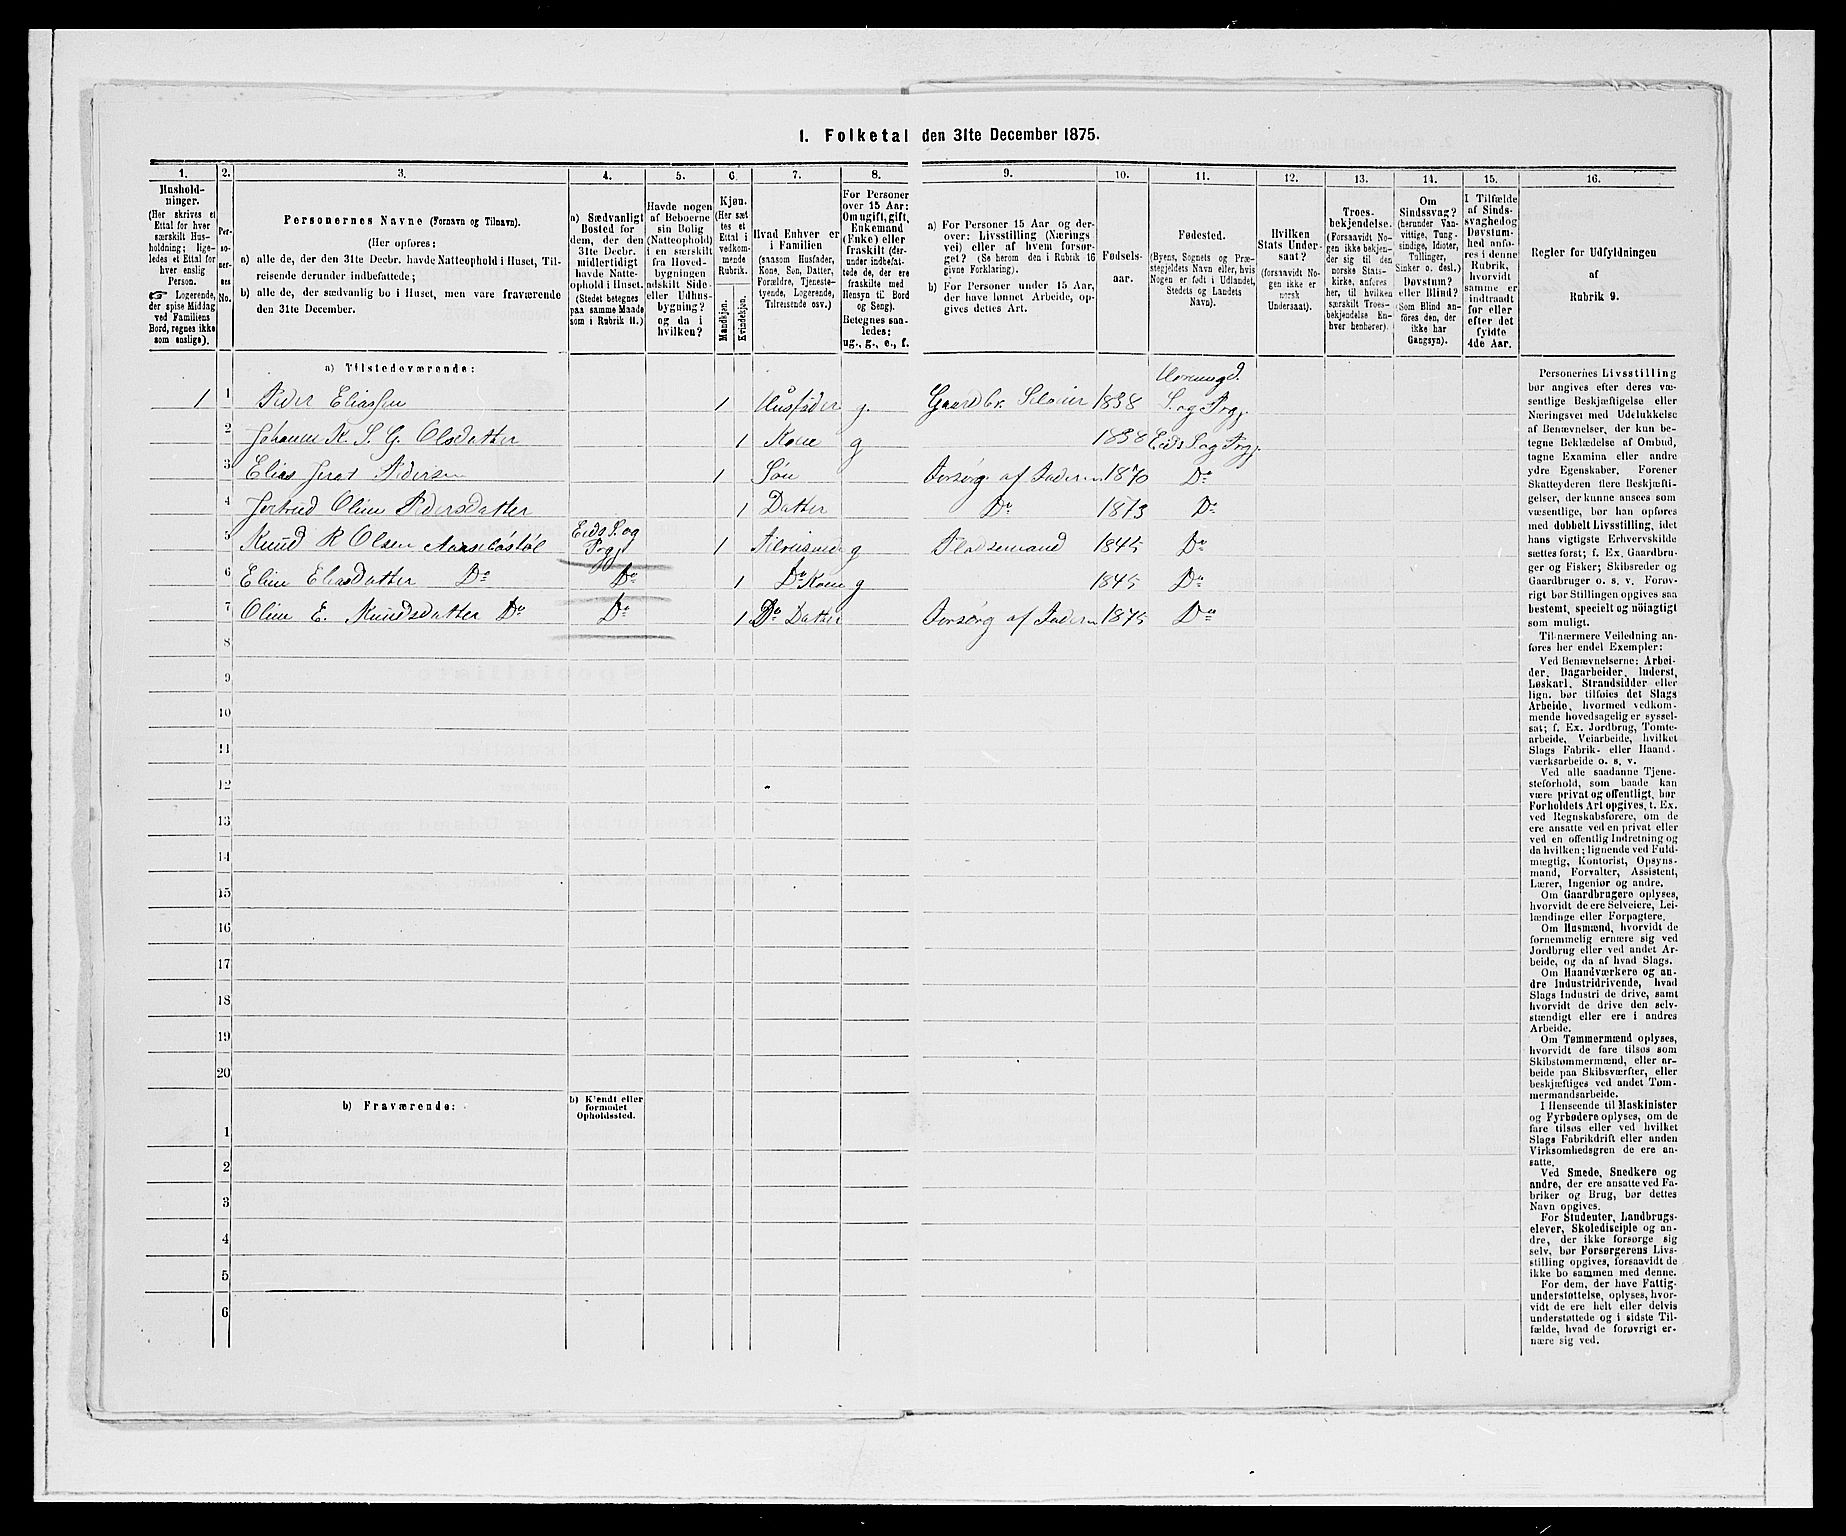 1. Folketal den 31te December 1875.
1. 2. 3. 4. 5. 6. 7. 8. 9. 10. 11. 12. 13. 14. 15. 16.
Hushold-
ninger.
(Her skrives et
Ettal for hver
særskilt Hus-
holdning; lige-
ledes et Ettal for
hver enslig
Person.
☞ Logerende,
der spise Middag
ved Familiens
Bord, regnes ikke
som enslige).
Per-
so-
ner-
nes
No.
Personernes Navne (Fornavn og Tilnavn).
(Her opføres:
a) alle de, der den 31te Decbr. havde Natteophold i Huset, Til-
reisende derunder indbefattede;
b) alle de, der sædvanlig bo i Huset, men vare fraværende
den 31te December.
a) Sædvanligt
Bosted for
dem, der den
31te Decbr.
midlertidigt
havde Natte-
ophold i Huset.
(Stedet betegnes
paa samme Maade
som i Rubrik 11.)
Havde nogen
af Beboerne
sin Bolig
(Natteophold)
i en særskilt
fra Hoved-
bygningen
adskilt Side-
eller Udhus-
bygning?
og da i
hvilken?
Kjøn.
(Her sæt-
tes et
Ettal i
vedkom-
mende
Rubrik.
Mandkjøn.
Kvindekjøn.
Hvad Enhver er
i Familien
(saasom Husfader,
Kone, Søn, Datter,
Forældre, Tjeneste-
tyende, Logerende,
Tilreisende osv.)
For Personer
over 15 Aar:
Om ugift, gift,
Enkemand
(Enke) eller
fraskilt (der-
under indbefat-
tede de, der ere
fraskilte med
Hensyn til Bord
og Seng).
Betegnes saa-
ledes:
ug., g., e., f.
a) For Personer 15 Aar og der-
over: Livsstilling (Nærings
vei) eller af hvem forsør-
get? (Se herom den i Rubrik 16
givne Forklaring).
b) For Personer under 15 Aar,
der have lønnet Arbeide, op-
gives dettes Art.
Fødsels-
aar.
Fødested.
(Byens, Sognets og Præ-
stegjeldets Navn eller, hvis
Nogen er født i Udlandet,
Stedets og Landets
Navn).
Hvilken
Stats Under-
saat?
(forsaavidt No-
gen ikke er
norsk
Undersaat).
Troes-
bekjendelse.
(Forsaavidt No-
gen ikke bekjen-
der sig til den
norske Stats-
kirke, anføres
her, til hvilken
særskilt Troes-
bekjendelse En-
hver henhører).
Om
Sindssvag?
(herunder Van-
vittige, Tung-
sindige, Idioter,
Tullinger,
Sinker o. desl.)
Døvstum?
eller Blind?
(Som Blind an-
føres den, der
ikke har
Gangsyn).
I Tilfælde
af Sinds-
svaghed og
Døvstum-
hed anfø-
res i denne
Rubrik,
hvorvidt
samme er
indtraadt
før eller
efter det
fyldte
4de Aar.
Regler for Udfyldningen
af
Rubrik 9.
a) Tilstedeværende:
1 1 Peder Eliassen 1 Husfader g. Gaardbr. Seleier 1838 Hornings. S. og Prgj.
2 Johanne K. S. G. Olsdatter 1 Kone g 1838 Eids S. og Prgj.
3 Elias Jerat Pedersen 1 Søn Forsørg. af Faderen 1870 Do
4 Jertrud Oline Pedersdatter 1 Datter Do 1873 Do
5 Knud R Olsen Eids S. og Prgj. 1 Tilreisende g 1845 Do
6 Eline Eliasdatter Do Do 1 Do Kone g 1845 Do
7 Oline E. Knudsdatter Do Do 1 Do Datter Forsørg af Faderen 1875 Do
8
9
10
11
12
13
14
15
16
17
18
19
20
b) Fraværende: b) Kjendt eller
formodet
Opholdssted.
1
2
3
4
5
6
Personernes Livsstilling
bør angives efter deres væ-
sentlige Beskjæftigelse eller
Næringsvei med Udelukkelse
af Benævnelser, der kun be-
tegne Beklædelse af Ombud,
tagne Examina eller andre
ydre Egenskaber. Forener
Skatteyderen flere Beskjæfti-
gelser, der kunne ansees som
væsentlige, bør han opføres
med dobbelt Livsstilling, idet
hans vigtigste Erhvervskilde
sættes først; f. Ex. Gaardbru-
ger og Fisker; Skibsreder og
Gaardbruger o. s. v. Forøv-
rigt bør Stillingen opgives saa
bestemt, specielt og nöiagtigt
som muligt.
Til nærmere Veiledning an-
føres her endel Exempler:
Ved Benævnelserne: Arbei-
der, Dagarbeider, Inderst,
Løskarl, Strandsidder eller
lign. bør tilføies det Slags
Arbeide, hvormed vedkom-
mende hovedsagelig er syssel-
sat; f. Ex. Jordbrug, Tomte-
arbeide, Veiarbeide, hvilket
Slags Fabrik- eller Haand-
værksarbeide o. s. v.
Ved alle saadanne Tjene-
steforhold, som baade kan
være privat og offentligt, bør
Forholdets Art opgives, t. Ex.
ved Regnskabsførere, om de
ere ansatte ved en privat eller
ved en offentlig Indretning og
da hvilken; lignende ved Fuld-
mægtig, Kontorist, Opsyns-
mand, Forvalter, Assistent,
Lærer, Ingeniør og andre.
Om Gaardbrugere oplyses,
hvorvidt de ere Selveiere, Lei-
lændinge eller Forpagtere.
Om Husmænd, hvorvidt de
fornemmelig ernære sig ved
Jordbrug eller ved andet Ar-
beide, og da af hvad Slags.
Om Haandværkere og an-
dre Industridrivende, hvad
Slags Industri de drive, samt
hvorvidt de drive den selv-
stændigt eller ere i andres
Arbeide.
Om Tømmermænd oplyses,
hvorvidt de fare tilsøs som
Skibstømmermænd, eller ar-
beide paa Skibsværfter, eller
beskjæftiges ved andet Tøm-
mermandsarbeide.
I Henseende til Maskinister
og Fyrbødere oplyses, om de
fare tilsøs eller ved hvilket
Slags Fabrikdrift eller anden
Virksomhedsgren de ere an-
satte.
Ved Smede, Snedkere og
andre, der ere ansatte ved Fa-
briker og Brug, bør dettes
Navn opgives.
For Studenter, Landbrugs-
elever, Skoledisciple og an-
dre, der ikke forsørge sig
selv, bør Forsørgerens Livs-
stilling opgives, forsaavidt de
ikke bo sammen med denne.
For dem, der have Fattig-
understøttelse, oplyses, hvor-
vidt de ere helt eller delvis
understøttede og i sidste Til-
fælde, hvad de forøvrigt er-
nære sig ved.